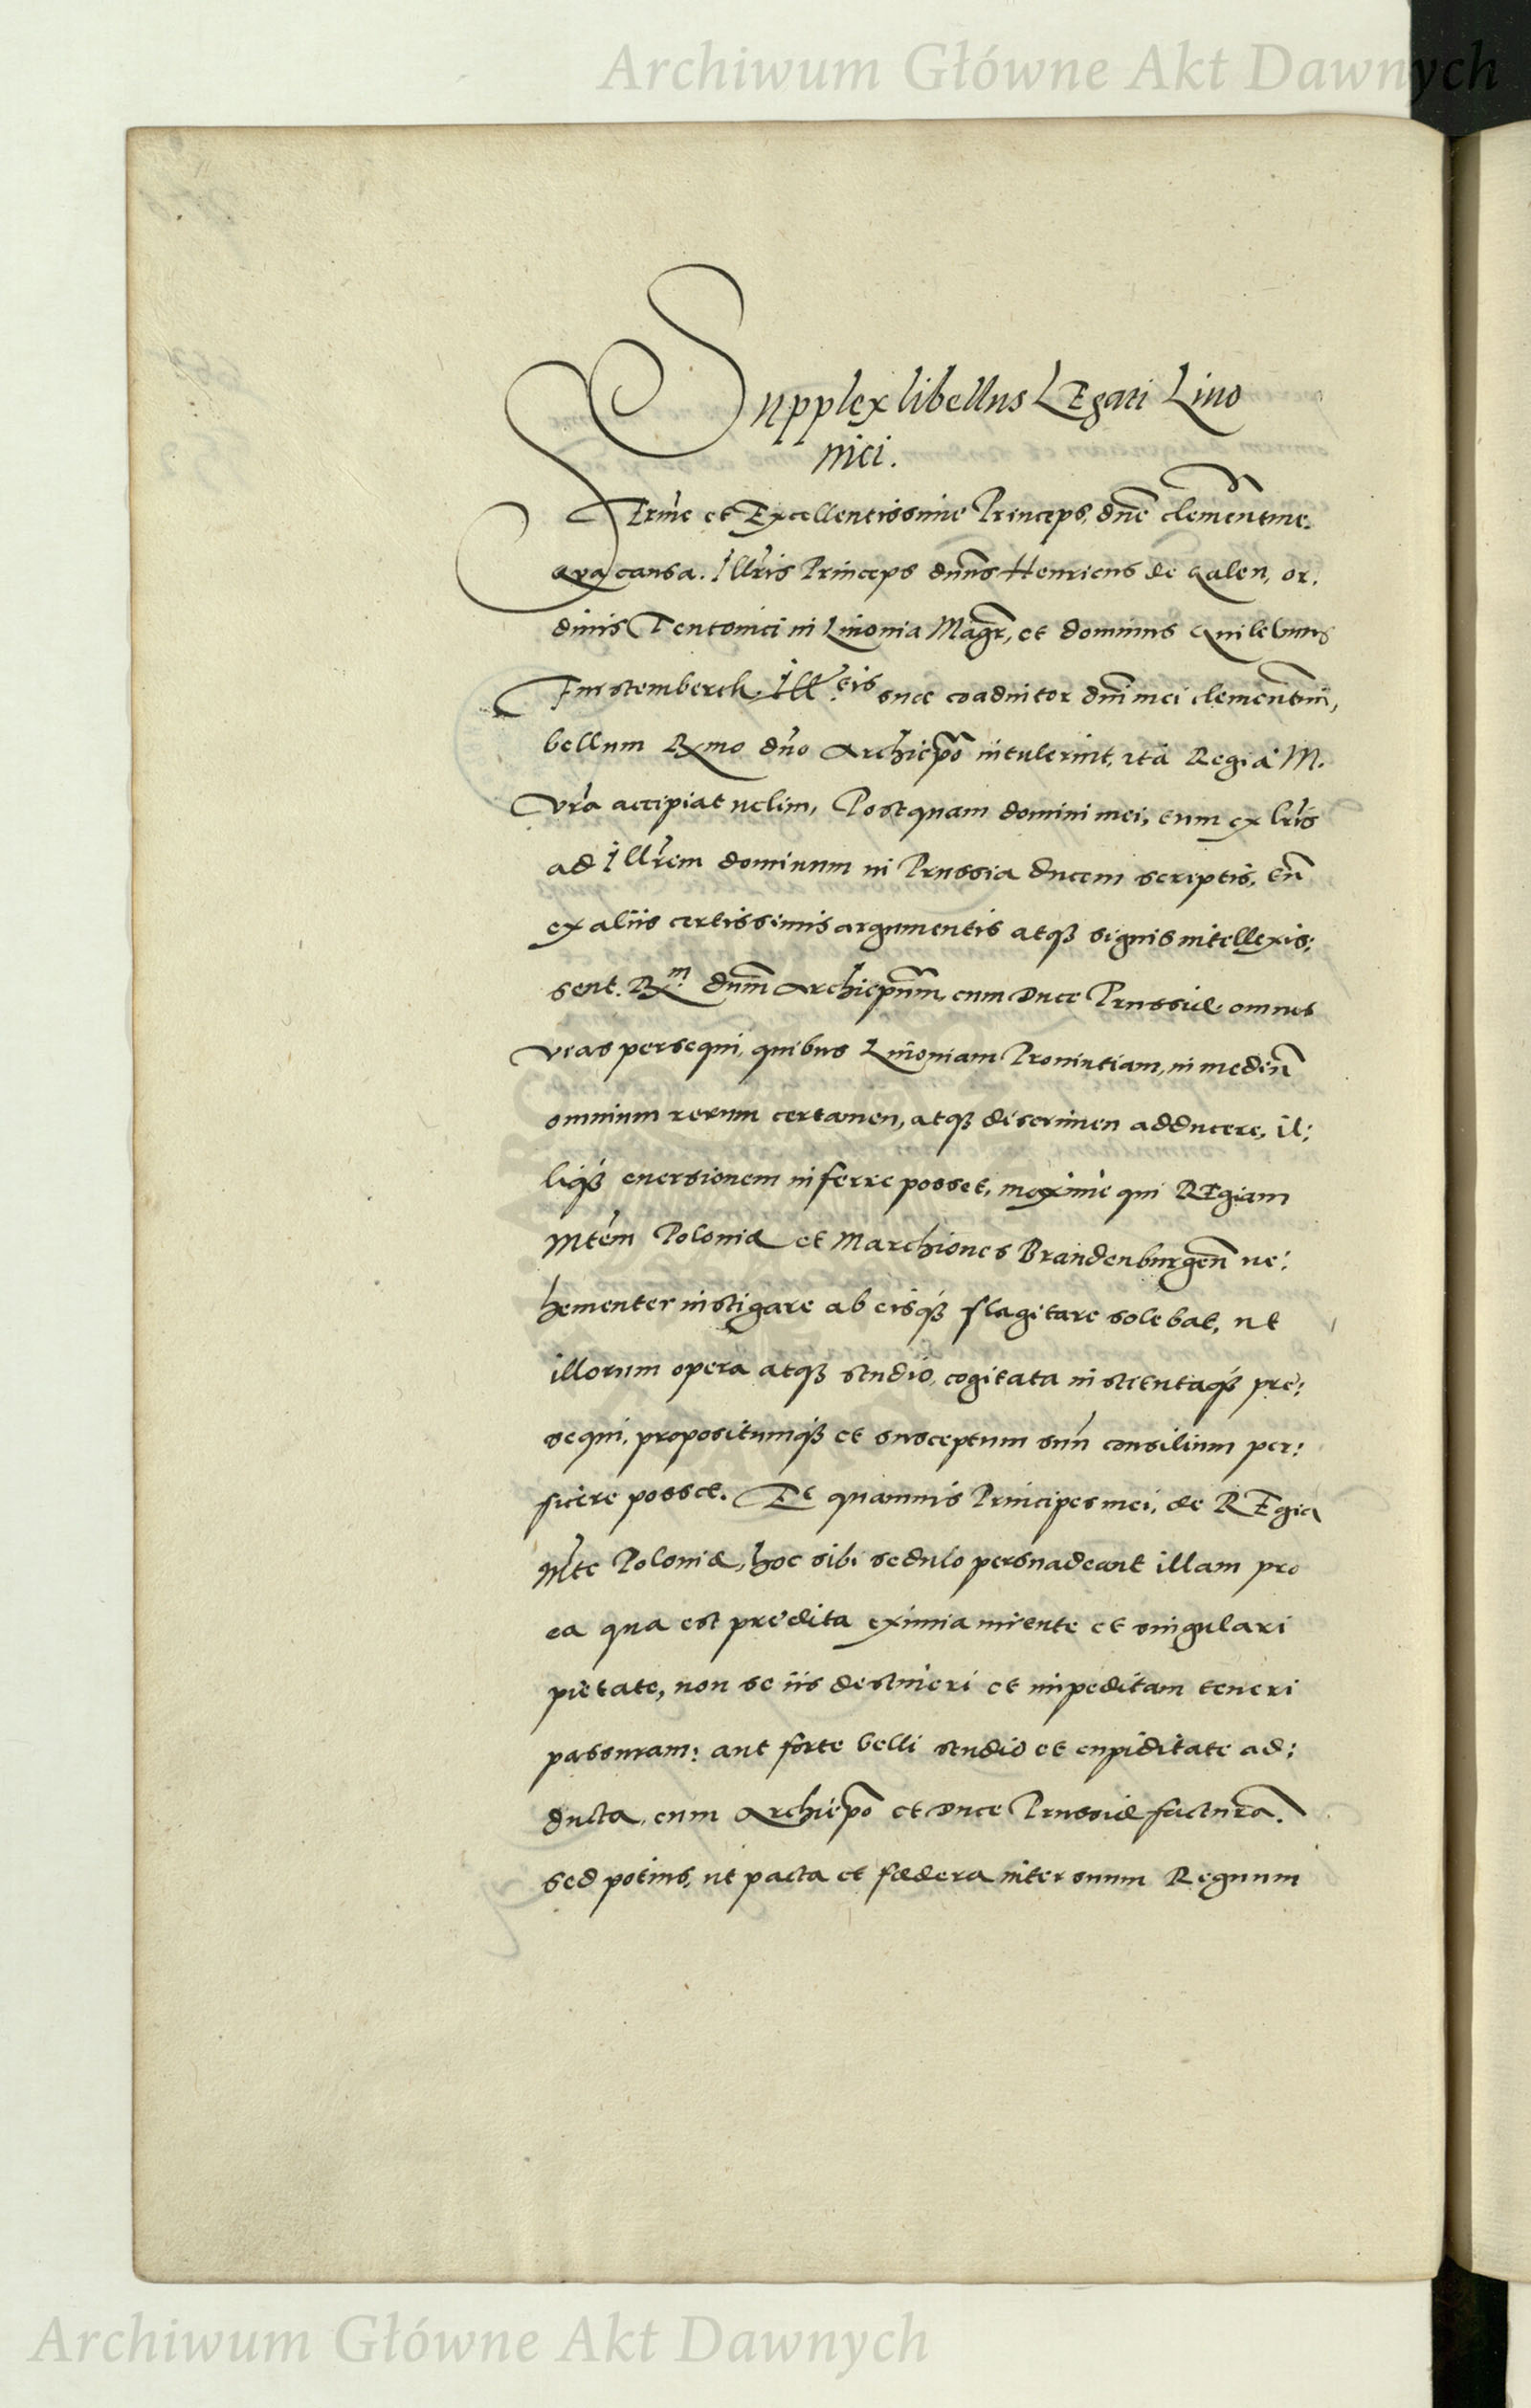 Archiwum Główne Akt Dawnych
Supplex libellus LEgati Liuo
nici.
SErm̃e et Excellentissime Princeps, dñe clementme.
Qua causa. Ill̃ris Princeps dñns Henricus de Galen, or,
dinis Teutonici in Liuonia Magr̃, et dominus Guilelmus
Furstemberch, Ill.eis suae coadiutor dñi mei clementmi,
bellum Rx̃mo dño Archiepõ intulerint, ità Regia M.
Vr̃a accipiat uelim, Postquam domini mei, cum ex lr̃is
ad Ill̃rem dominum in Prussia ducem scriptis, tũ
ex aliis certissimis argumentis atqꝫ signis intellexis:
sent. Rx.m dñm Archiepũm, cum Duce Prussiæ omnes
vias persequi, quibus Liuoniam Prouintiam, in mediũ
omnium rerum certamen, atqꝫ discrimen adducere, il:
liqꝫ euersionem inferre posset, maxime qui REgiam
Mtẽm Poloniæ et Marchiones Brandenburgeñ ue:
hementer instigare ab eisqꝫ flagitare solebat, ut
illorum operà atqꝫ studio, cogitata institutaqꝫ pre:
sequi, propositumqꝫ et susceptum suũ consilium per:
ficere posset. Et quamuis Principes mei, de REgia
Mt̃e Poloniæ, hoc sibi sedulo persuadeant illam pro
ea qua est predita eximia mente et singulari
pietate, non se iis destineri et impeditam teneri
passuram: aut forte belli studio et cupiditate ad:
ducta, cum Archiepõ et Duce Prussiæ facturã.
sed potius, ut pacta et fædera inter suum Regnum
Archiwum Główne Akt Dawnych